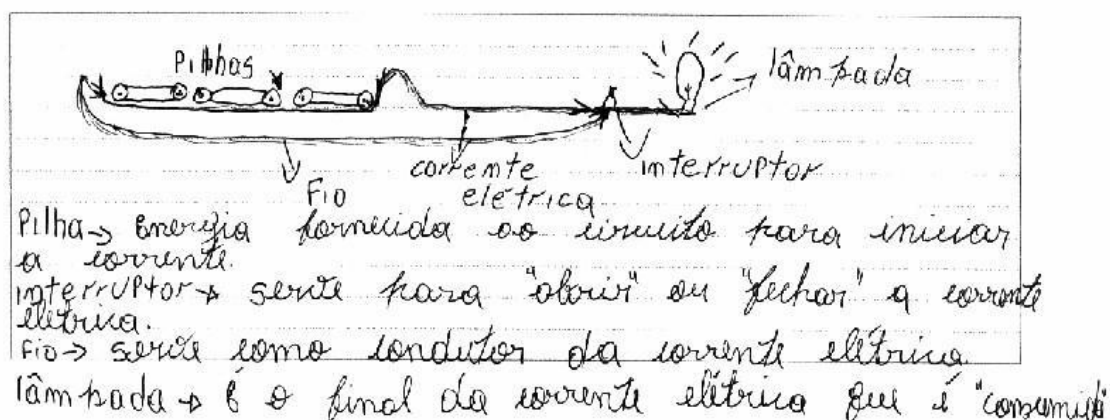 Pilhas
lâmpada
corrente
elétrica
interruptor
Fio
Pilha → Energia fornecida ao circuito para iniciar
a corrente.
interruptor → serve para "abrir" ou "fechar" a corrente
elétrica.
Fio → serve como condutor da corrente elétrica
lâmpada → é o final da corrente elétrica que é "consumida"